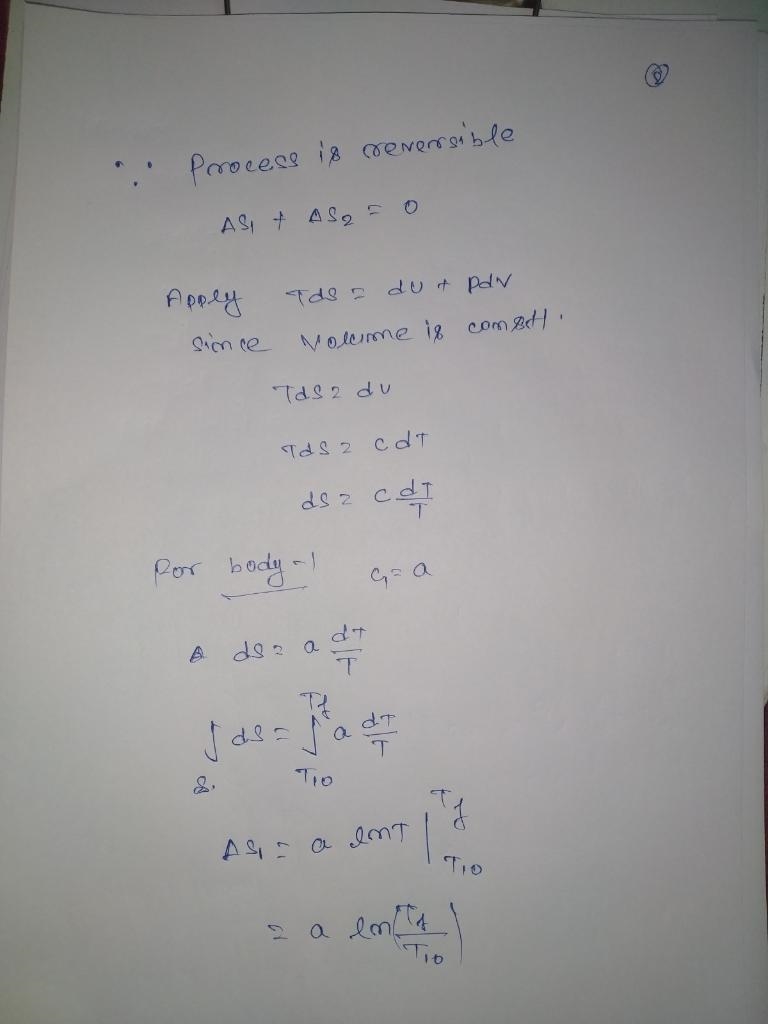 ②
∵ Process is reversible
ΔS₁ + ΔS₂ = 0
Apply Tds = dU + PdV
Since Volume is constt.
Tds = dU
Tds = CdT
ds = C dT/T
For body-1 C₁ = a
ds = a dT/T
∫ds = ∫_{T₁₀}^{T_f} a dT/T
ΔS₁ = a lnT |_{T₁₀}^{T_f}
= a ln(T_f/T₁₀)